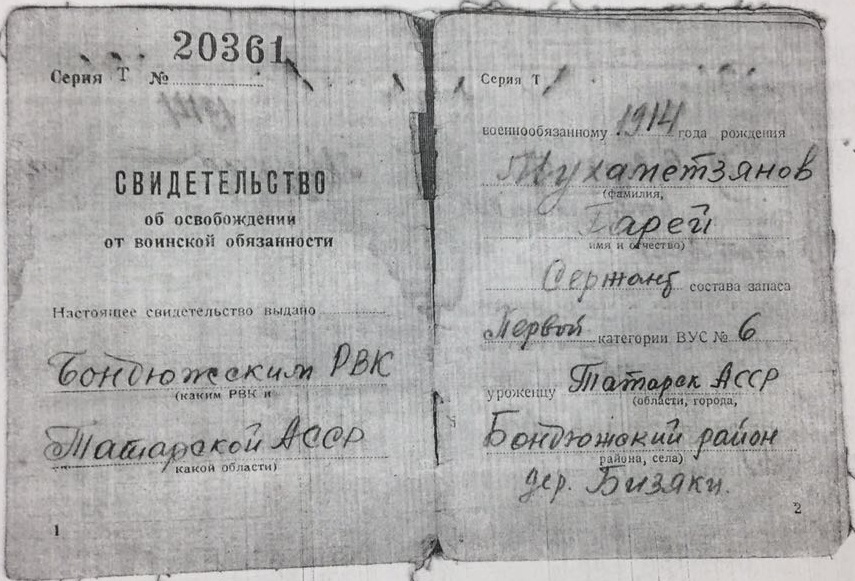 20361
Серия Т №
СВИДЕТЕЛЬСТВО
об освобождении
от воинской обязанности
Настоящее свидетельство выдано
Бондюжским РВК
(каким РВК и
Татарской АССР
какой области)
1
Серия Т
военнообязанному 1914 года рождения
Мухаметзянов
(фамилия,
Гарей
имя и отчество)
Сержант состава запаса
Первой категории ВУС № 6
уроженцу Татарск АССР
(области, города,
Бондюжский район
района, села)
дер. Бизяки.
2